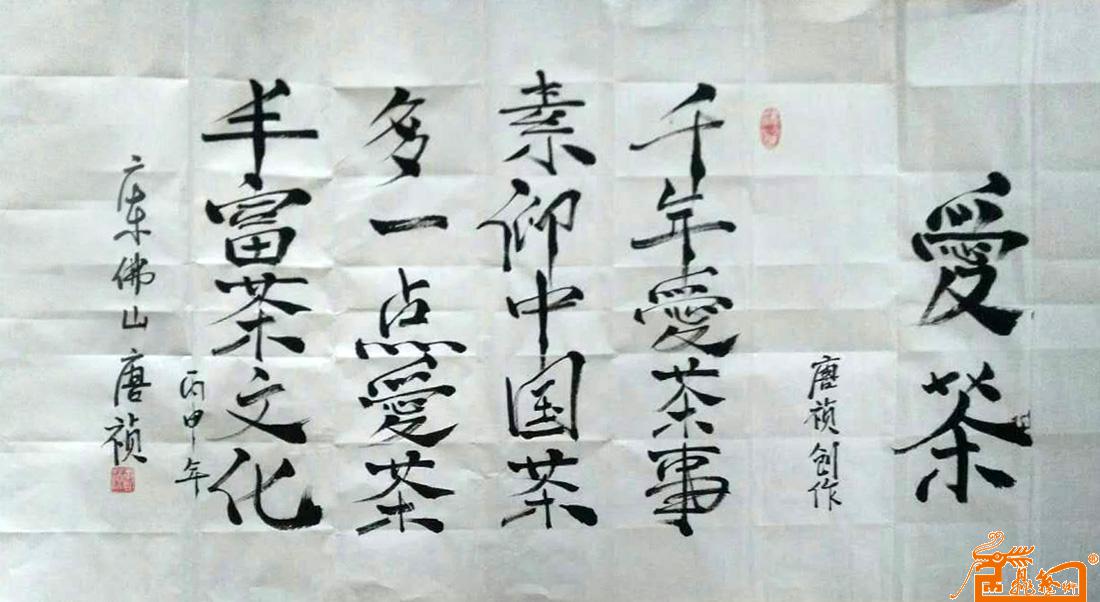 愛茶
唐祯創作
千年愛茶事
素仰中国茶
多一点愛茶
半富茶文化
丙申年
广东佛山唐祯